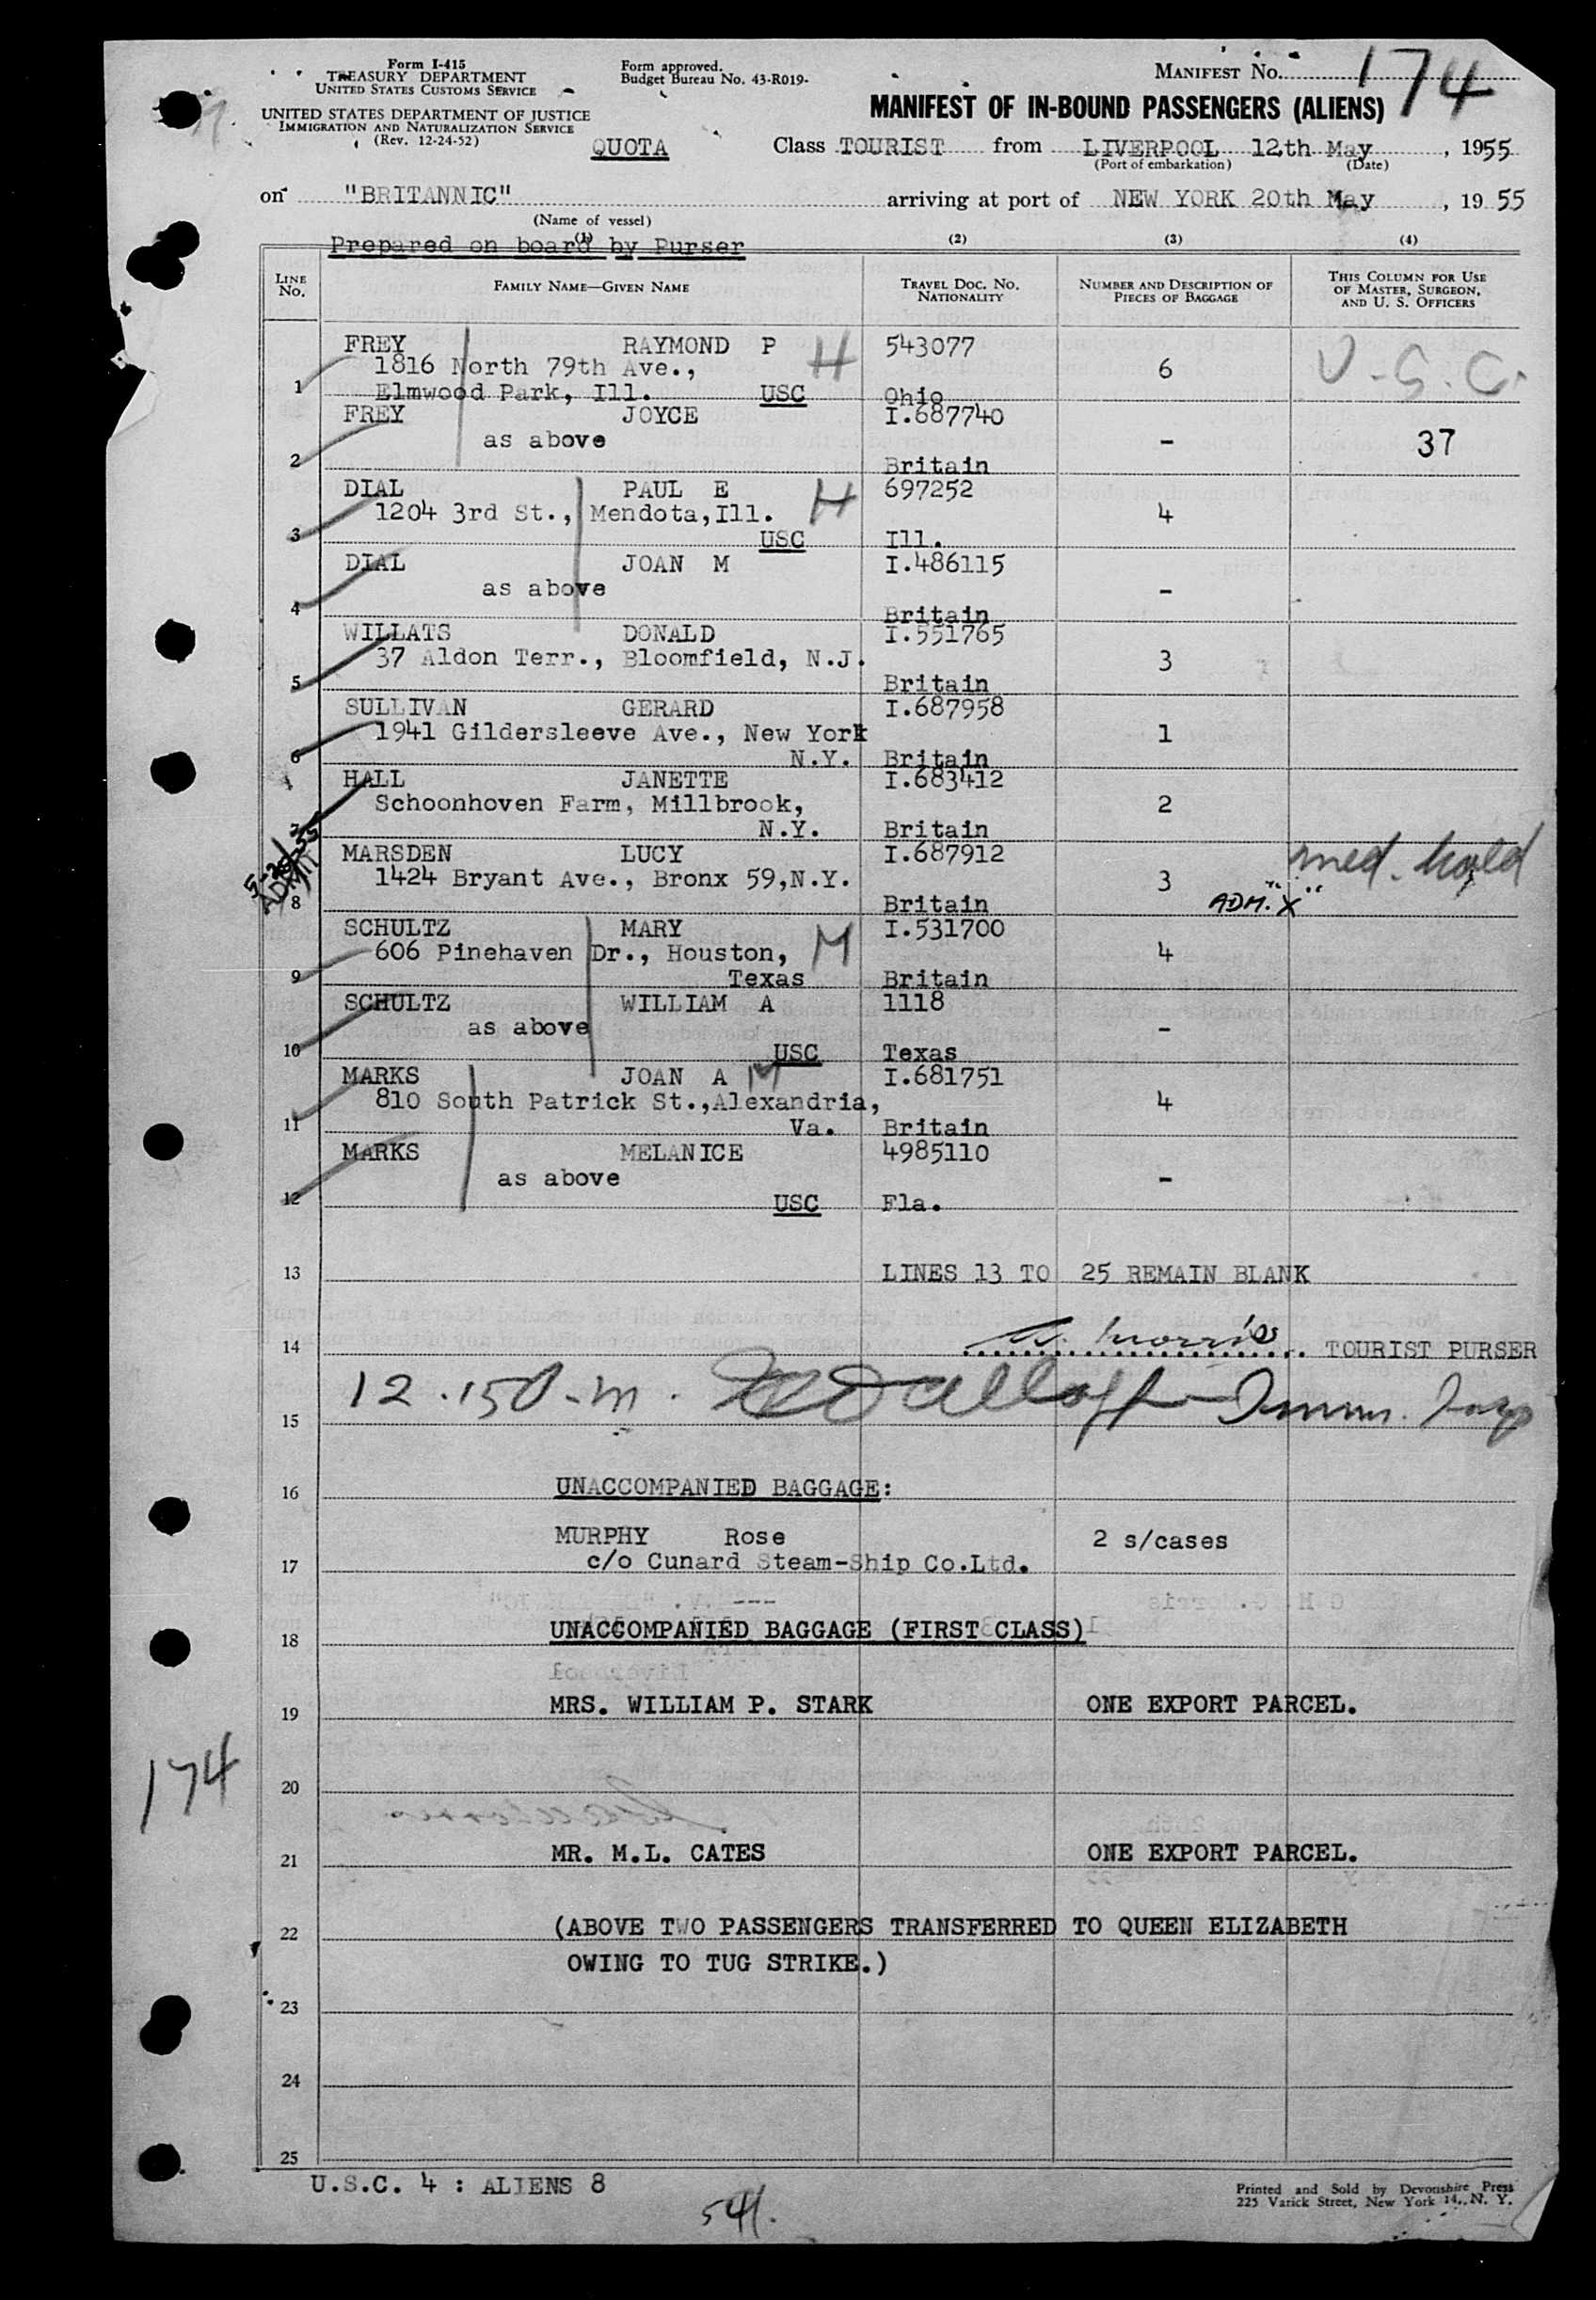 Form I-415
TREASURY DEPARTMENT
UNITED STATES CUSTOMS SERVICE
UNITED STATES DEPARTMENT OF JUSTICE
IMMIGRATION AND NATURALIZATION SERVICE
(Rev. 12-24-52)
Form approved.
Budget Bureau No. 43-R019-
MANIFEST No. 174
MANIFEST OF IN-BOUND PASSENGERS (ALIENS)
QUOTA Class TOURIST from LIVERPOOL 12th May, 1955
(Port of embarkation) (Date)
on "BRITANNIC" arriving at port of NEW YORK 20th May, 1955
(Name of vessel)
Prepared on board by Purser
(1) (2) (3) (4)
LINE No. FAMILY NAME—GIVEN NAME TRAVEL DOC. NO. NATIONALITY NUMBER AND DESCRIPTION OF PIECES OF BAGGAGE THIS COLUMN FOR USE OF MASTER, SURGEON, AND U. S. OFFICERS
FREY RAYMOND P H 543077 U.S.C.
1816 North 79th Ave., 6
1 Elmwood Park, Ill. USC Ohio
FREY JOYCE I.687740
as above - 37
2 Britain
DIAL PAUL E H 697252
1204 3rd St., Mendota,Ill. 4
3 USC Ill.
DIAL JOAN M I.486115
as above -
4 Britain
WILLATS DONALD I.551765
37 Aldon Terr., Bloomfield, N.J. 3
5 Britain
SULLIVAN GERARD I.687958
1941 Gildersleeve Ave., New York 1
6 N.Y. Britain
HALL JANETTE I.683412
Schoonhoven Farm, Millbrook, 2
7 N.Y. Britain
MARSDEN LUCY I.687912 med. hold
1424 Bryant Ave., Bronx 59,N.Y. 3
ADMIT
8 Britain ADM. "X"
SCHULTZ MARY M I.531700
606 Pinehaven Dr., Houston, 4
9 Texas Britain
SCHULTZ WILLIAM A 1118
as above -
10 USC Texas
MARKS JOAN A M I.681751
810 South Patrick St.,Alexandria, 4
11 Va. Britain
MARKS MELANICE 4985110
as above -
12 USC Fla.
13 LINES 13 TO 25 REMAIN BLANK
14 Morris TOURIST PURSER
12.15 P.m. Immn. Insp
15
16 UNACCOMPANIED BAGGAGE:
MURPHY Rose 2 s/cases
17 c/o Cunard Steam-Ship Co.Ltd.
---
18 UNACCOMPANIED BAGGAGE (FIRST CLASS)
19 MRS. WILLIAM P. STARK ONE EXPORT PARCEL.
174
20
21 MR. M.L. CATES ONE EXPORT PARCEL.
22 (ABOVE TWO PASSENGERS TRANSFERRED TO QUEEN ELIZABETH
OWING TO TUG STRIKE.)
23
24
25
U.S.C. 4 : ALIENS 8
541.
Printed and Sold by Devonshire Press
225 Varick Street, New York 14, N. Y.